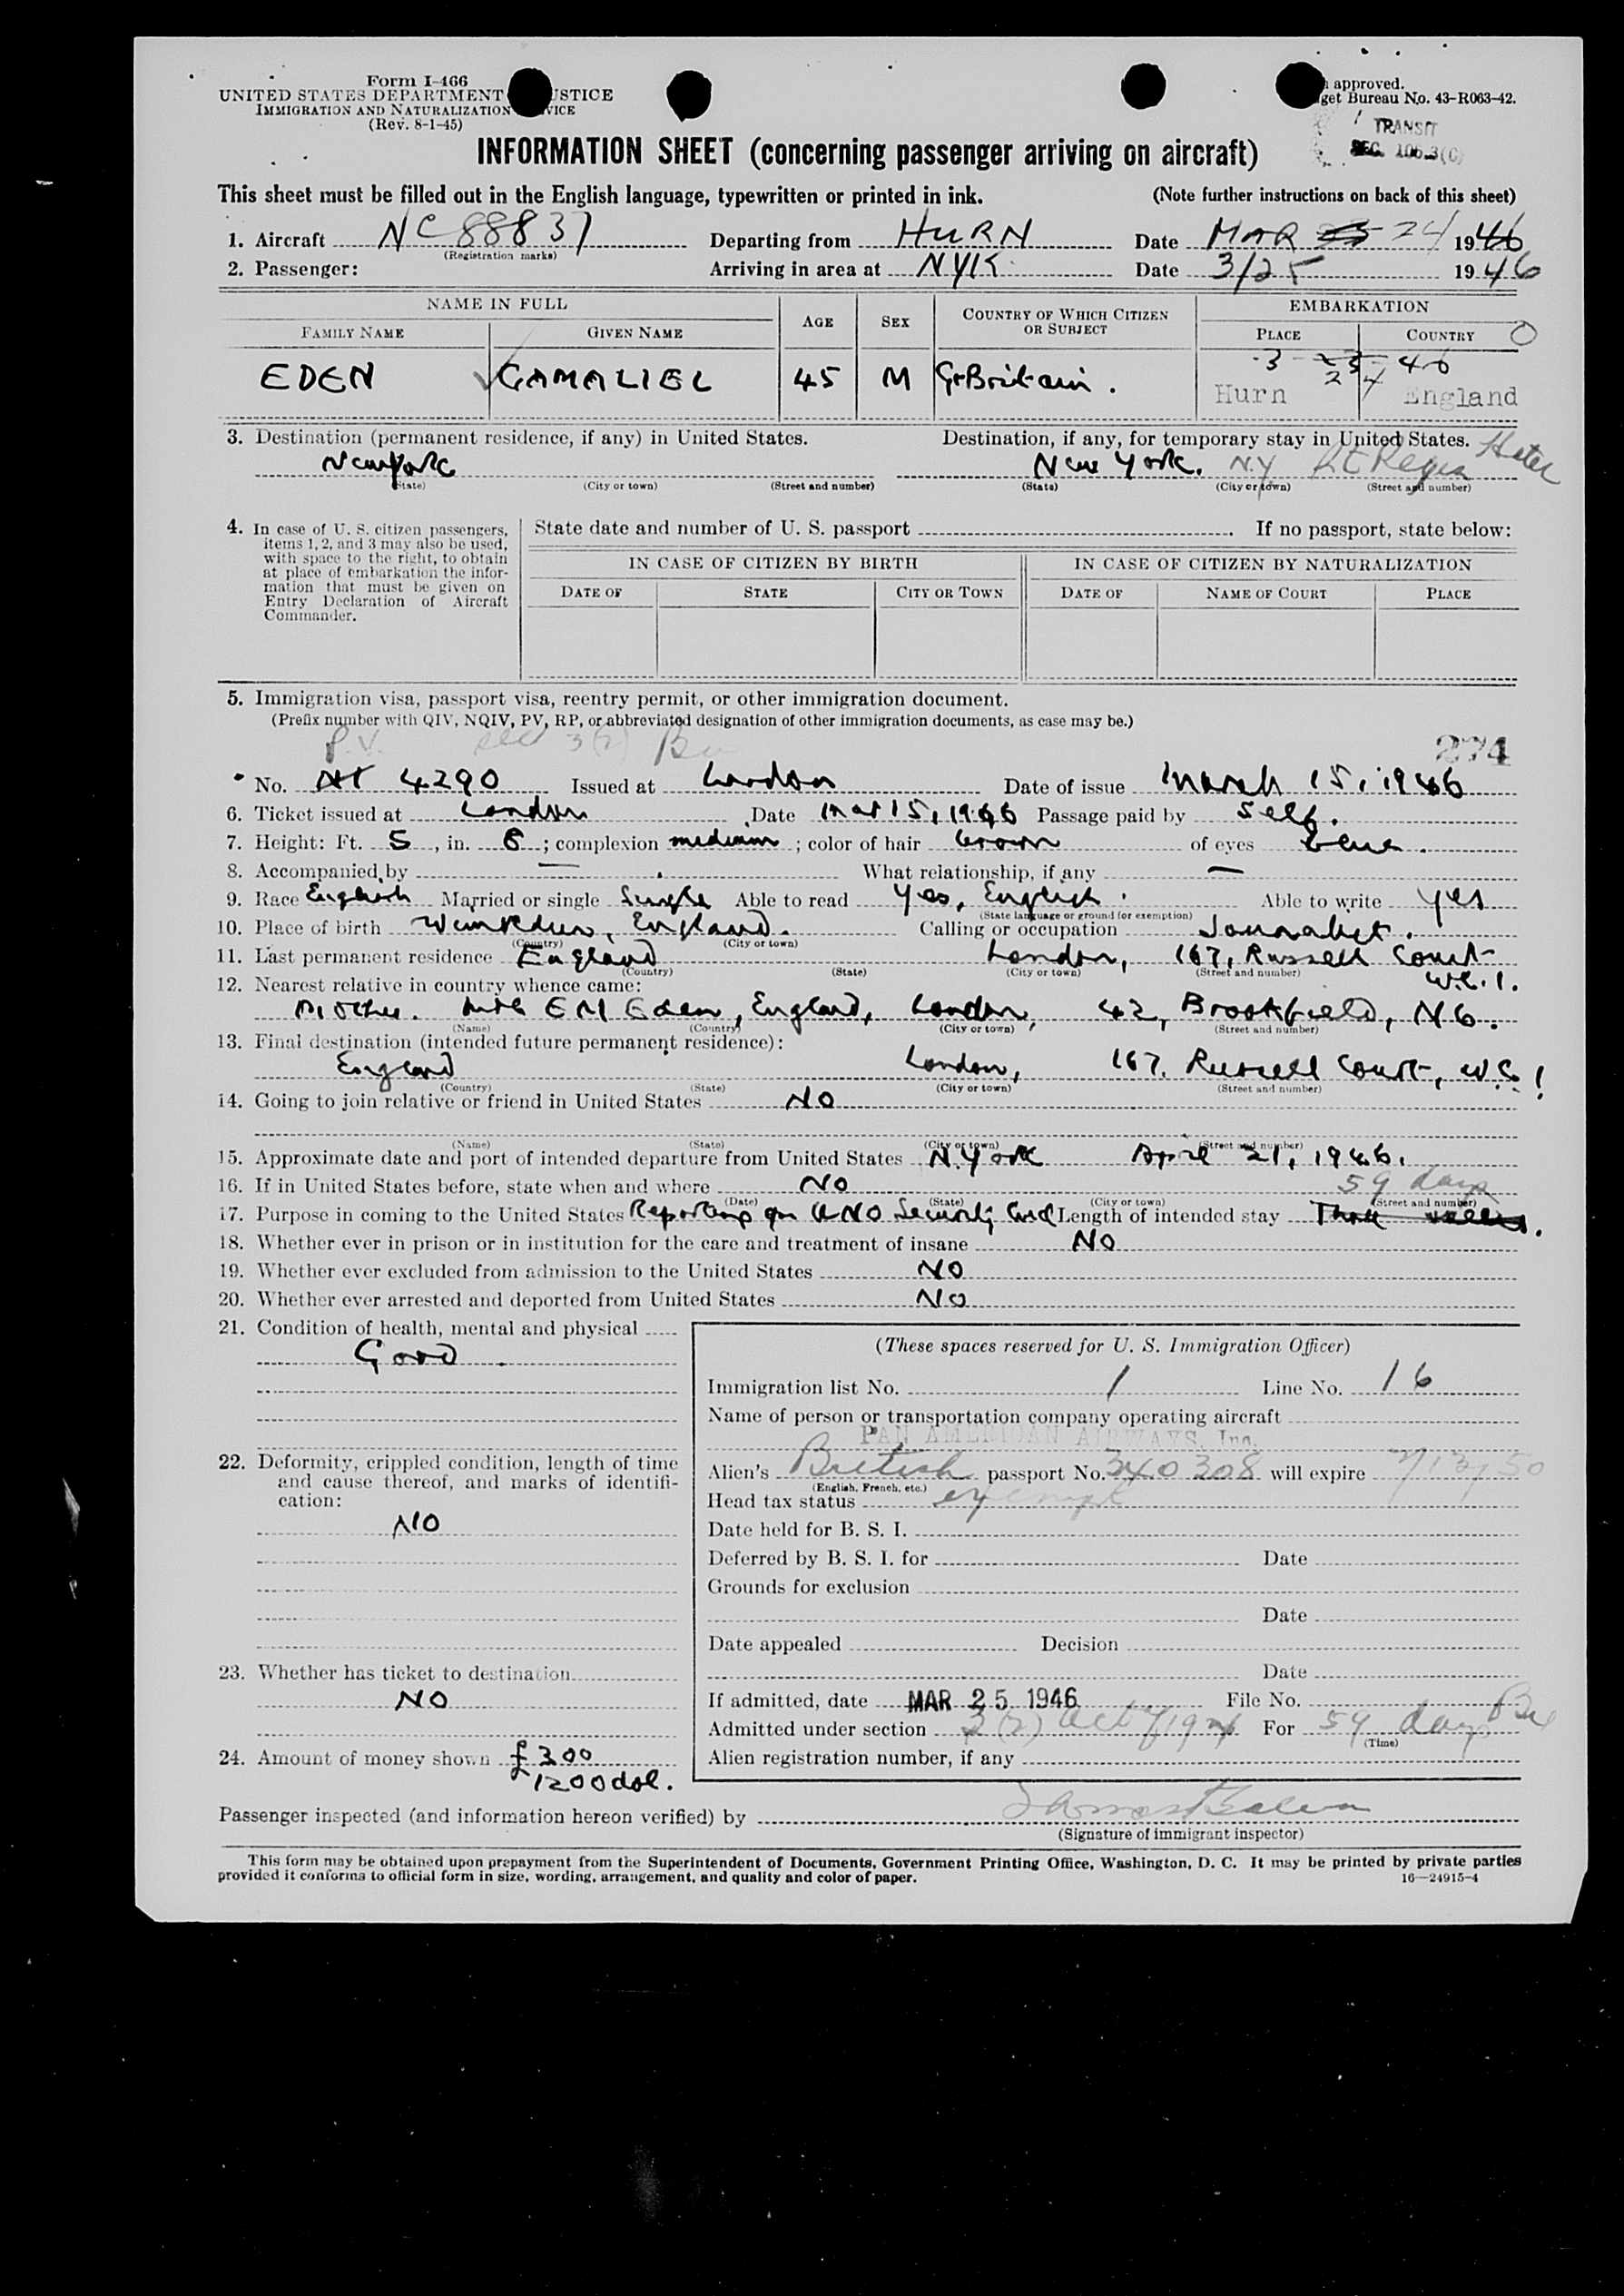 Form I-466
UNITED STATES DEPARTMENT STICE
IMMIGRATION AND NATURALIZATION VICE
(Rev. 8-1-45)
approved.
get Bureau No. 43-R063-42.
TRANSIT
SEC. 106.3(C)
INFORMATION SHEET (concerning passenger arriving on aircraft)
This sheet must be filled out in the English language, typewritten or printed in ink. (Note further instructions on back of this sheet)
1. Aircraft NC 88837 Departing from HURN Date MAR 24 1946
(Registration marks)
2. Passenger: Arriving in area at NYK Date 3/25 1946
NAME IN FULL AGE SEX COUNTRY OF WHICH CITIZEN OR SUBJECT EMBARKATION
FAMILY NAME GIVEN NAME PLACE COUNTRY
3-23-46
24
EDEN GAMALIEL 45 M Gr Britain. Hurn England
3. Destination (permanent residence, if any) in United States. Destination, if any, for temporary stay in United States. Hotel
New York New York. N.Y St Regis
(State) (City or town) (Street and number) (State) (City or town) (Street and number)
4. In case of U. S. citizen passengers, items 1, 2, and 3 may also be used, with space to the right, to obtain at place of embarkation the information that must be given on Entry Declaration of Aircraft Commander.
State date and number of U. S. passport . If no passport, state below:
IN CASE OF CITIZEN BY BIRTH IN CASE OF CITIZEN BY NATURALIZATION
DATE OF STATE CITY OR TOWN DATE OF NAME OF COURT PLACE
5. Immigration visa, passport visa, reentry permit, or other immigration document.
(Prefix number with QIV, NQIV, PV, RP, or abbreviated designation of other immigration documents, as case may be.)
P.V. sec 3(2) 274
No. 4290 Issued at London Date of issue March 15, 1946
6. Ticket issued at London Date Mar 15, 1946 Passage paid by self.
7. Height: Ft. 5, in. 8; complexion medium; color of hair brown of eyes blue.
8. Accompanied by — What relationship, if any —
9. Race English Married or single Single Able to read Yes, English. Able to write yes
(State language or ground for exemption)
10. Place of birth Wimbledon, England. Calling or occupation Journalist.
(Country) (City or town)
11. Last permanent residence England London, 167, Russell Court W.C.1.
(Country) (State) (City or town) (Street and number)
12. Nearest relative in country whence came:
Mother. Mrs E M Eden, England, London, 42, Brookfield, N6.
(Name) (Country) (City or town) (Street and number)
13. Final destination (intended future permanent residence):
England London, 167. Russell Court, W.C.1
(Country) (State) (City or town) (Street and number)
14. Going to join relative or friend in United States NO
(Name) (State) (City or town) (Street and number)
15. Approximate date and port of intended departure from United States N.York April 21, 1946.
16. If in United States before, state when and where NO
(Date) (State) (City or town) (Street and number)
59 days
17. Purpose in coming to the United States Reporting on UNO Security Council Length of intended stay Three weeks.
18. Whether ever in prison or in institution for the care and treatment of insane NO
19. Whether ever excluded from admission to the United States NO
20. Whether ever arrested and deported from United States NO
21. Condition of health, mental and physical
Good.
22. Deformity, crippled condition, length of time and cause thereof, and marks of identification:
NO
23. Whether has ticket to destination
NO
24. Amount of money shown £300
1200 dol.
(These spaces reserved for U. S. Immigration Officer)
Immigration list No. 1 Line No. 16
Name of person or transportation company operating aircraft
PAN AMERICAN AIRWAYS, Inc.
Alien's British passport No. 340308 will expire
(English, French, etc.)
Head tax status exempt
Date held for B. S. I.
Deferred by B. S. I. for Date
Grounds for exclusion
Date
Date appealed Decision
Date
If admitted, date MAR 25 1946 File No.
Admitted under section 3(2) Act of 1924 For 59 days
(Time)
Alien registration number, if any
Passenger inspected (and information hereon verified) by
(Signature of immigrant inspector)
This form may be obtained upon prepayment from the Superintendent of Documents, Government Printing Office, Washington, D. C. It may be printed by private parties
provided it conforms to official form in size, wording, arrangement, and quality and color of paper. 16—24915-4